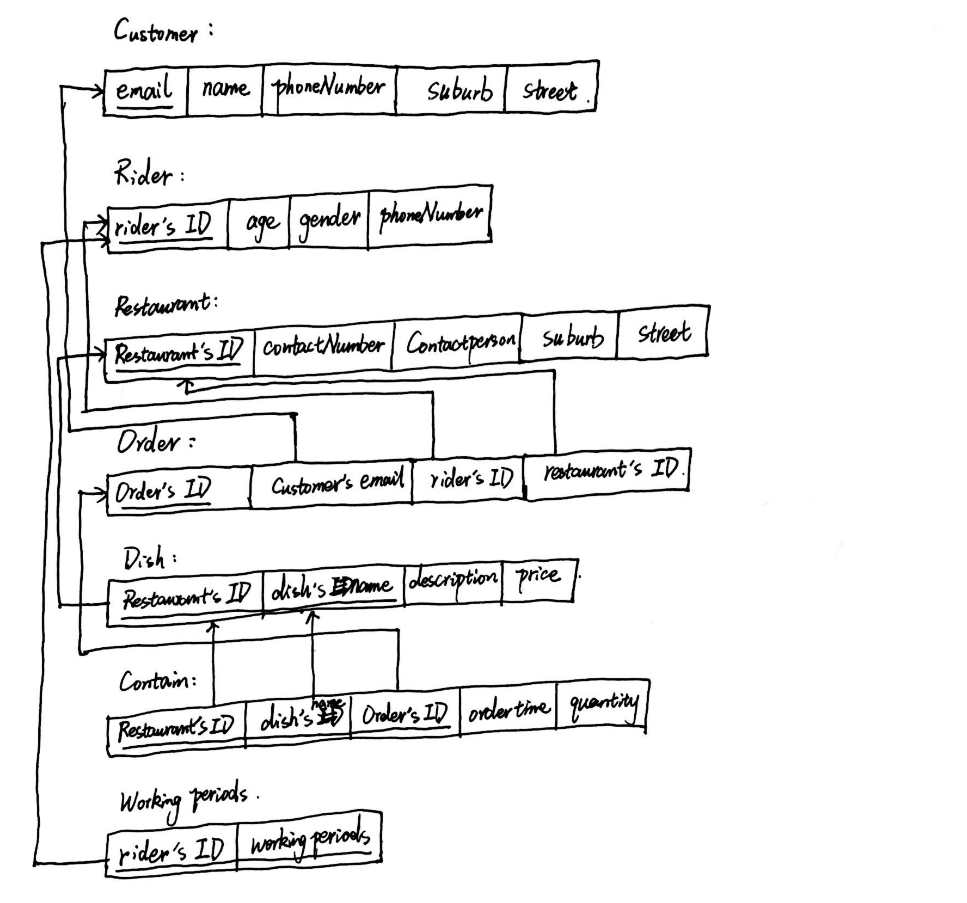 Customer :
email name phoneNumber suburb street .
Rider :
rider's ID age gender phoneNumber
Restaurant :
Restaurant's ID contactNumber Contactperson suburb street
Order :
Order's ID Customer's email rider's ID restaurant's ID.
Dish :
Restaurant's ID dish's name description price
Contain :
Restaurant's ID dish's name Order's ID order time quantity
Working periods .
rider's ID working periods